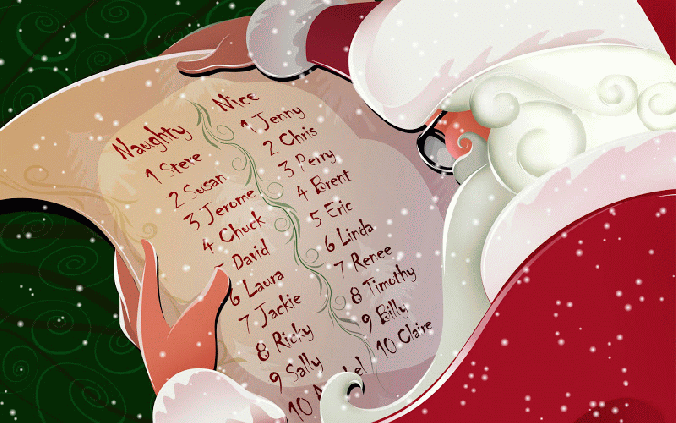 Naughty
1 Steve
2 Susan
3 Jerome
4 Chuck
David
6 Laura
7 Jackie
8 Ricky
9 Sally
10
Nice
1 Jenny
2 Chris
3 Perry
4 Brent
5 Eric
6 Linda
7 Renee
8 Timothy
9 Billy
10 Claire